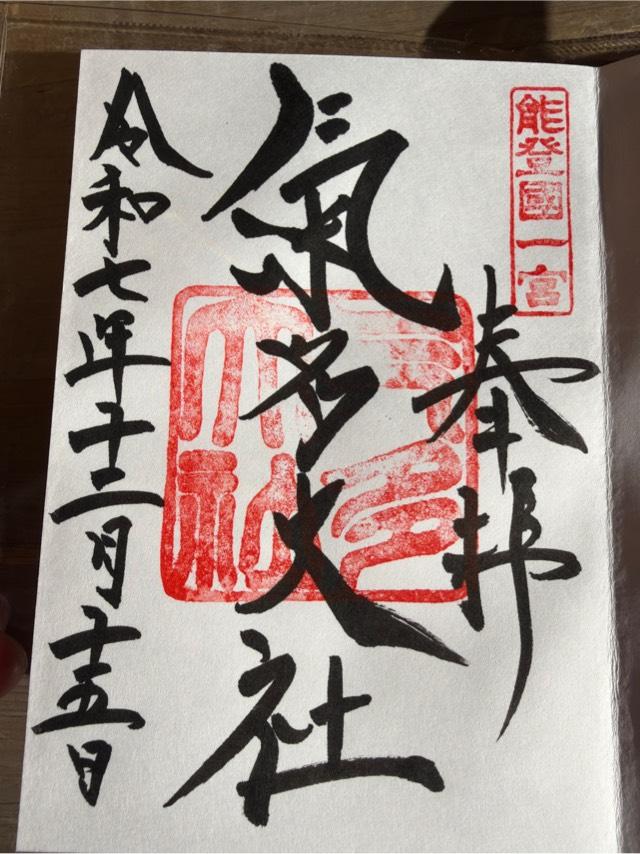 能登國一宮
奉拝
氣多大社
令和七年十二月十五日
氣多
大社